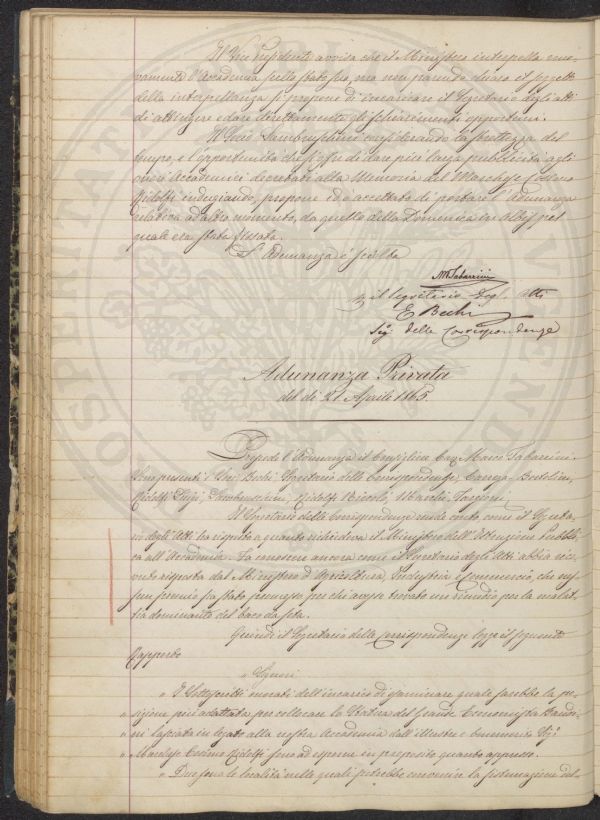 Il Vice presidente avvisa che il Ministero interpella nuo-
vamente l'Accademia sullo stato suo, ma non parendo chiaro il soggetto
della interpellanza si propone di incaricare il Segretario degli atti
di attingere e dare direttamente gli schiarimenti opportuni.
Il Socio Lambruschini considerando la strettezza del
tempo e l'opportunità che si offre di dare più larga pubblicità agli
onori Accademici decretati alla Memoria del Marchese Cosimo
Ridolfi indugiando, propone ed è accettato di portare l'Adunanza
relativa ad altro momento, da quello della Domenica in Albis pel
quale era stata fissata.
L'Adunanza è sciolta
M Tabarrini
il Segretario degl. Atti
E Bechi
Seg. delle Corrispondenze
Adunanza Privata
del dì 21 Aprile 1865.
Presiede l'Adunanza il Consigliere Cav. Marco Tabarrini.
Son presenti i Soci Bechi Segretario delle Corrispondenze, Carega Bertolini,
Ridolfi Luigi, Lambruschini, Ridolfo Niccolò, Targioni.
Il Segretario delle Corrispondenze rende conto come il Segreta-
rio degli Atti ha risposto a quanto richiedeva il Ministero dell'Istruzione Pubbli-
ca all'Accademia. Fa conoscere ancora come il Segretario degli Atti abbia rice-
vuto risposta dal Ministero d'Agricoltura, Industria e Commercio, che nes-
sun premio fu stato promesso per chi avesse trovato un rimedio per la malat-
tia dominante del baco da seta.
Quindi il Segretario delle Corrispondenze legge il seguente
Rapporto
" Signori
" I Sottoscritti onorati dell'incarico di esaminare quale sarebbe la po-
" sizione più adattata per collocare la Statua del Grande Economista Bandi-
" ni lasciata in legato alla nostra Accademia dall'illustre e benemerito Sig.
" Marchese Cosimo Ridolfi sono ad esporne in proposito quanto appresso.
" Due sono le località nelle quali potrebbe convenire la sistemazione del-